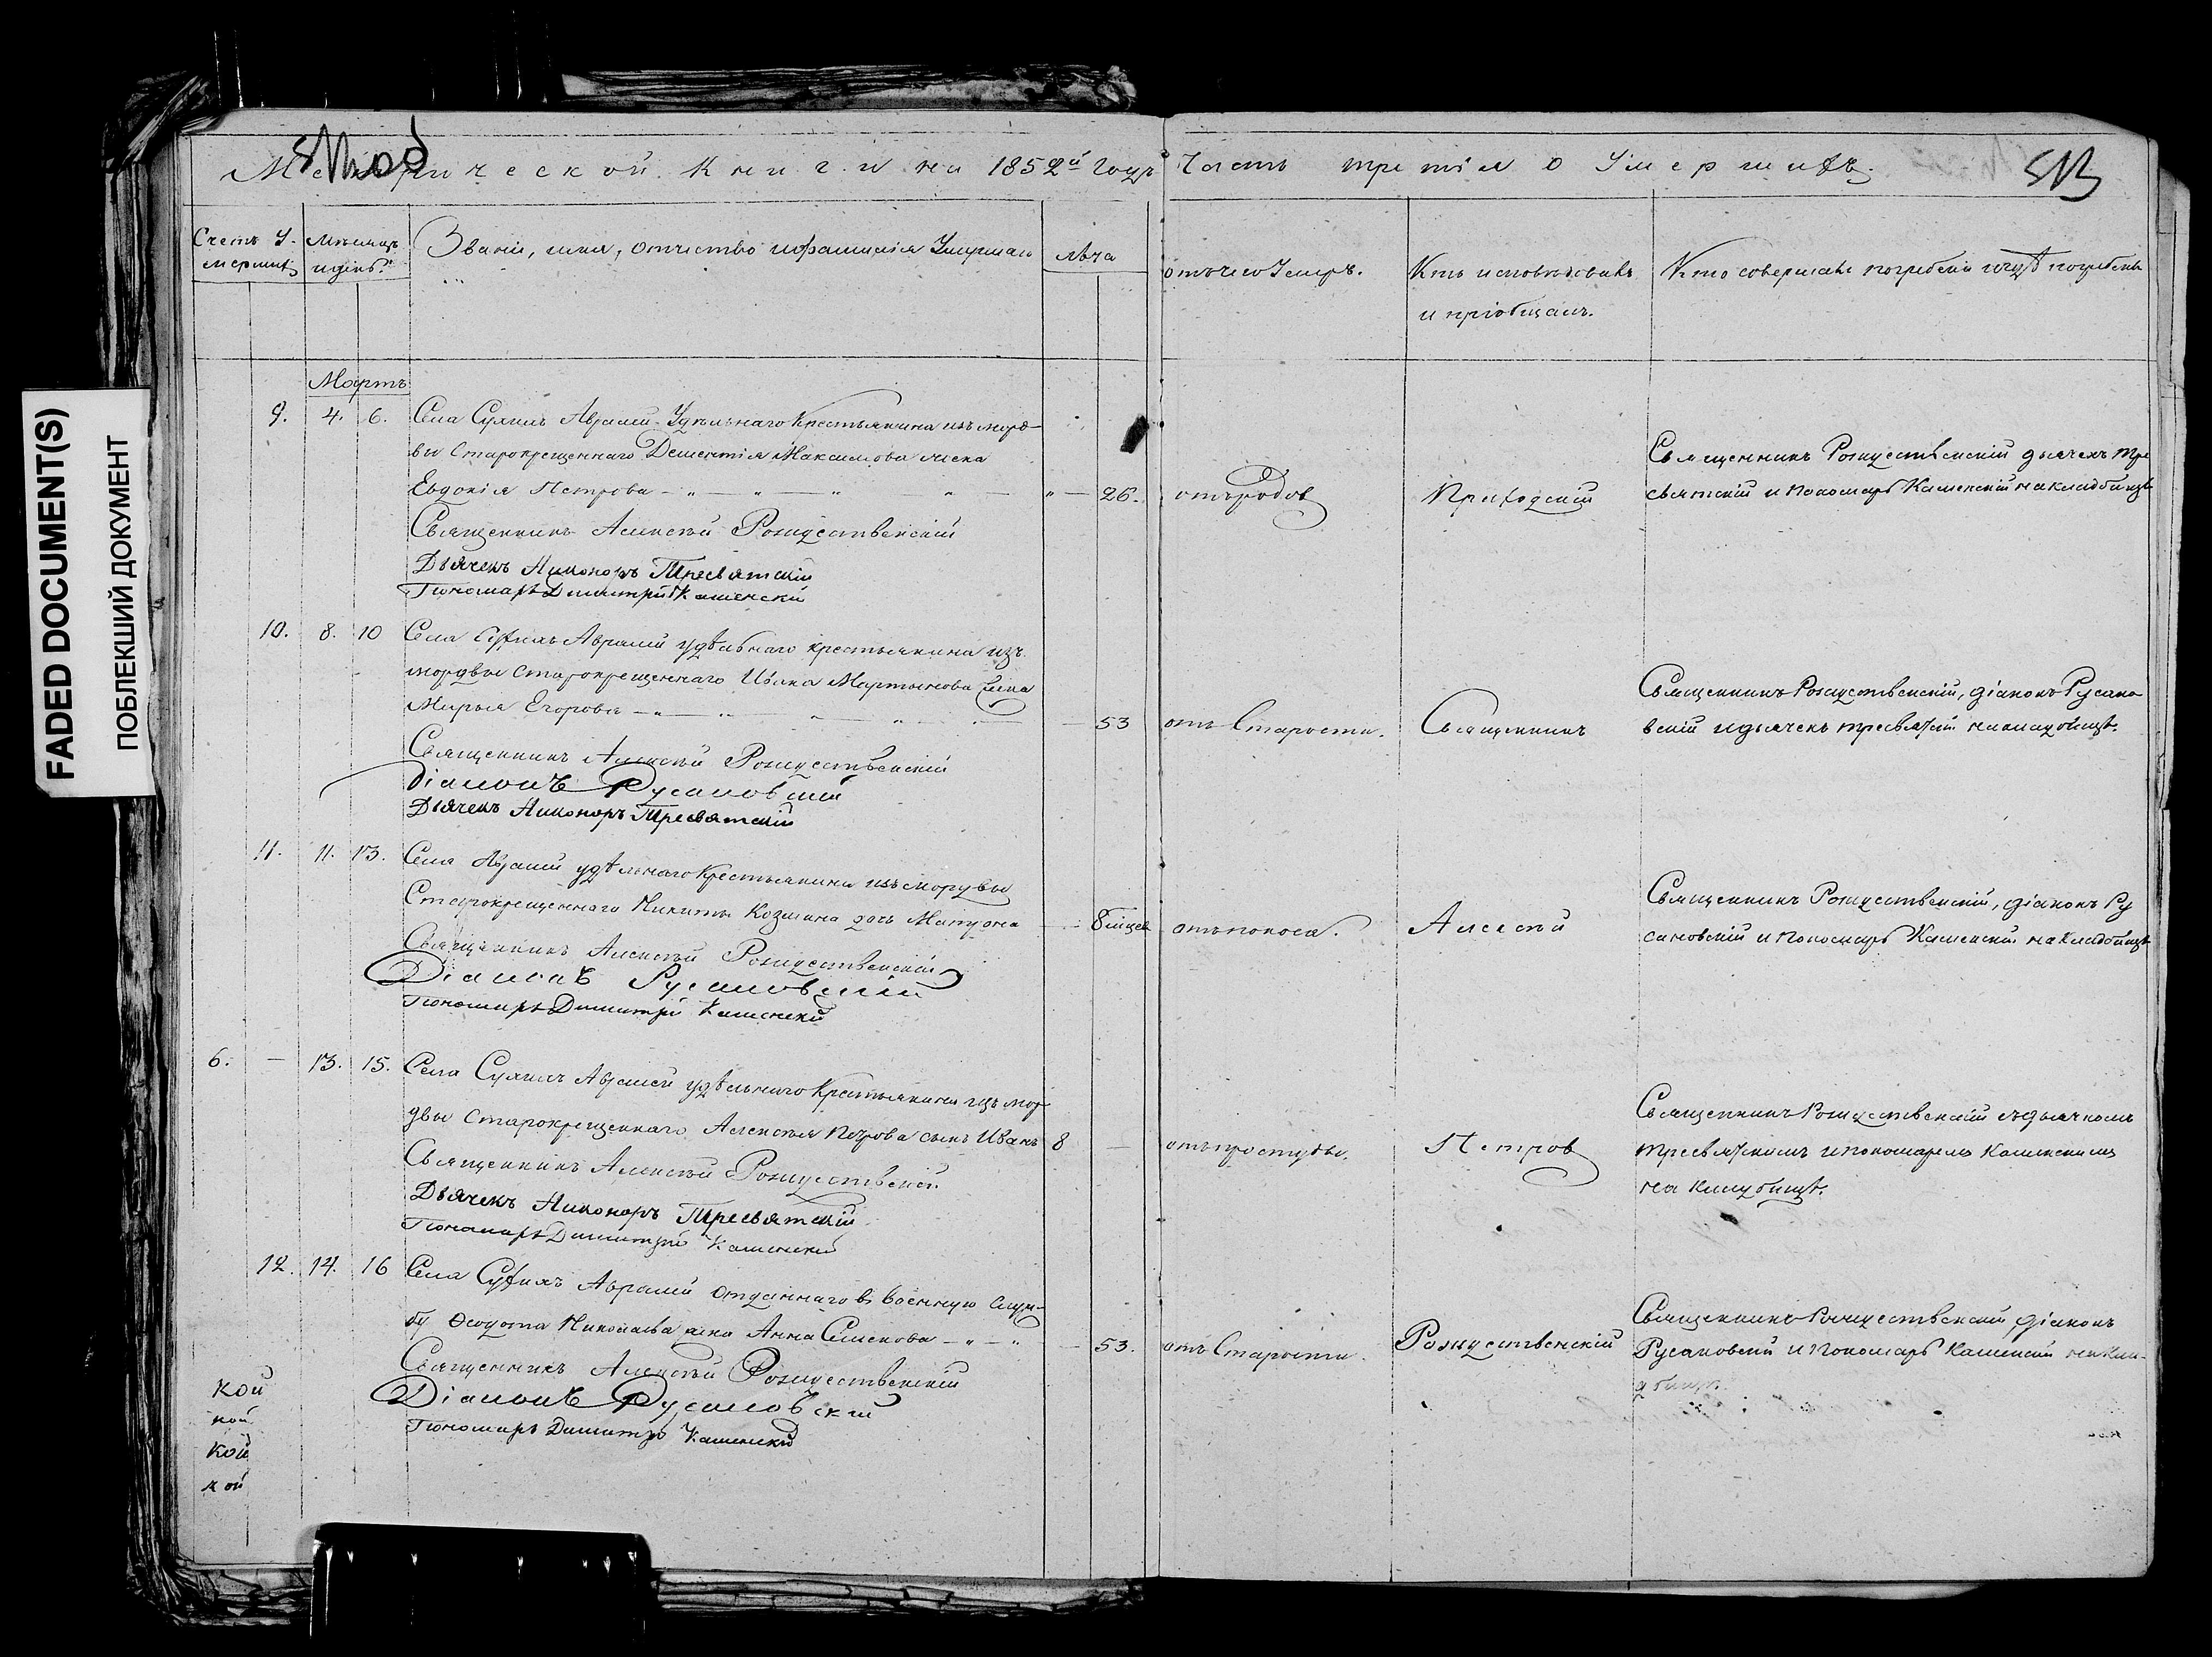 FADED DOCUMENT(S)
ПОБЛЕКШИЙ ДОКУМЕНТ
Метрической Книги на 1852й годъ Часть третія о Умершихъ.
513
Счетъ У-
мершихъ
Мѣсяцъ
и день.
Званіе, имя, отчество и фамилія Умершаго
лѣта
отъ чего Умеръ.
Кто исповѣдовалъ
и пріобщалъ.
Кто совершалъ погребеніе и гдѣ погребены
Мартъ
9. 4. 6. Села Сухихъ Авралей Удѣльнаго Крестьянина изъ морд-
вы Старокрещеннаго Дементія Максимова жена
Евдокія Петрова 26. отъ родов Приходскій
Священникъ Рождественскій дьячекъ Тре
святскій и Пономарь Каменскій на кладбищѣ
Священникъ Алексѣй Рождественскій
Дьячекъ Никоноръ Тресвятскій
Пономарь Димитрій Каменскій
10. 8. 10 Села Сухихъ Авралей удѣльнаго крестьянина изъ
мордвы Старокрещеннаго Ивана Мартынова жена
Марья Егорова 53 отъ Старости. Священникъ
Священникъ Рождественскій, діаконъ Русано
вскій и дьячекъ тресвятскій на кладбищѣ.
Священникъ Алексѣй Рождественскій
Діаконъ Русановскій
Дьячекъ Никоноръ Тресвятскій
11. 11. 13. Села Авралей удѣльнаго Крестьянина изъ мордвы
Старокрещеннаго Никиты Козмина дочь Матрона 8 мцев отъ поноса. Алексѣй
Священникъ Рождественскій, діаконъ Ру
сановскій и Пономарь Каменскій на Кладбищѣ
Священникъ Алексѣй Рождественскій
Діаконъ Русановскій
Пономарь Димитрій Каменскій
6. — 13. 15. Села Сухихъ Авралей удѣльнаго Крестьянина изъ мор
двы Старокрещеннаго Алексѣя Петрова сынъ Иванъ 8 — отъ простуды. Петров
Священникъ Рождественскій съ дьячкомъ
тресвятскимъ и пономаремъ Каменскимъ
на кладбищѣ.
Священникъ Алексѣй Рождественскій
Дьячекъ Никоноръ Тресвятскій
Пономарь Димитрій Каменскій
12. 14. 16 Села Сухихъ Авралей отданнаго в военную служ-
бу Ѳедота Николаева жена Анна Семенова 53. отъ Старости. Рождественскій
Священникъ Рождественскій, діаконъ
Русановскій и Пономарь Каменскій на кла-
дбищѣ.
Священникъ Алексѣй Рождественскій
Діаконъ Русановскій
Пономарь Димитрій Каменскій
кой
кой
кой
кой